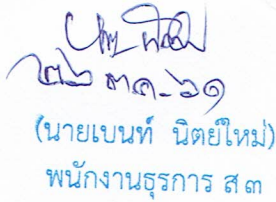 ๒๖ ตค. ๖๑
(นายเบนท์ นิตย์ใหม่)
พนักงานธุรการ ส ๓